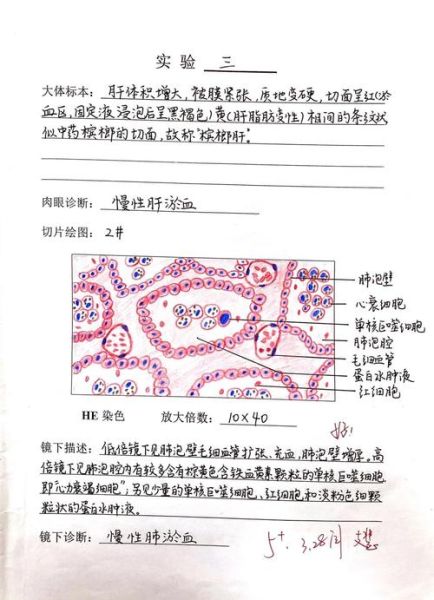 实 验 三
大体标本: 肝体积增大,被膜紧张,质地变硬,切面呈红(淤
血区,固定液浸泡后呈黑褐色)黄(肝脂肪变性)相间的条纹状
似中药槟榔的切面,故称"槟榔肝"。
肉眼诊断: 慢性肝淤血
切片绘图: 2#
肺泡壁
心衰细胞
单核巨噬细胞
肺泡腔
毛细血管
蛋白水肿液
红细胞
HE 染色 放大倍数: 10×40
好!
镜下描述: 低倍镜下见肺泡壁毛细血管扩张、充血,肺泡壁增厚。高
倍镜下见肺泡腔内有较多含有棕黄色含铁血黄素颗粒的单核巨噬细胞
即"心力衰竭细胞";另见少量的单核巨噬细胞、红细胞和淡粉色细颗
粒状的蛋白水肿液。
镜下诊断: 慢性肺淤血 5+. 3.28